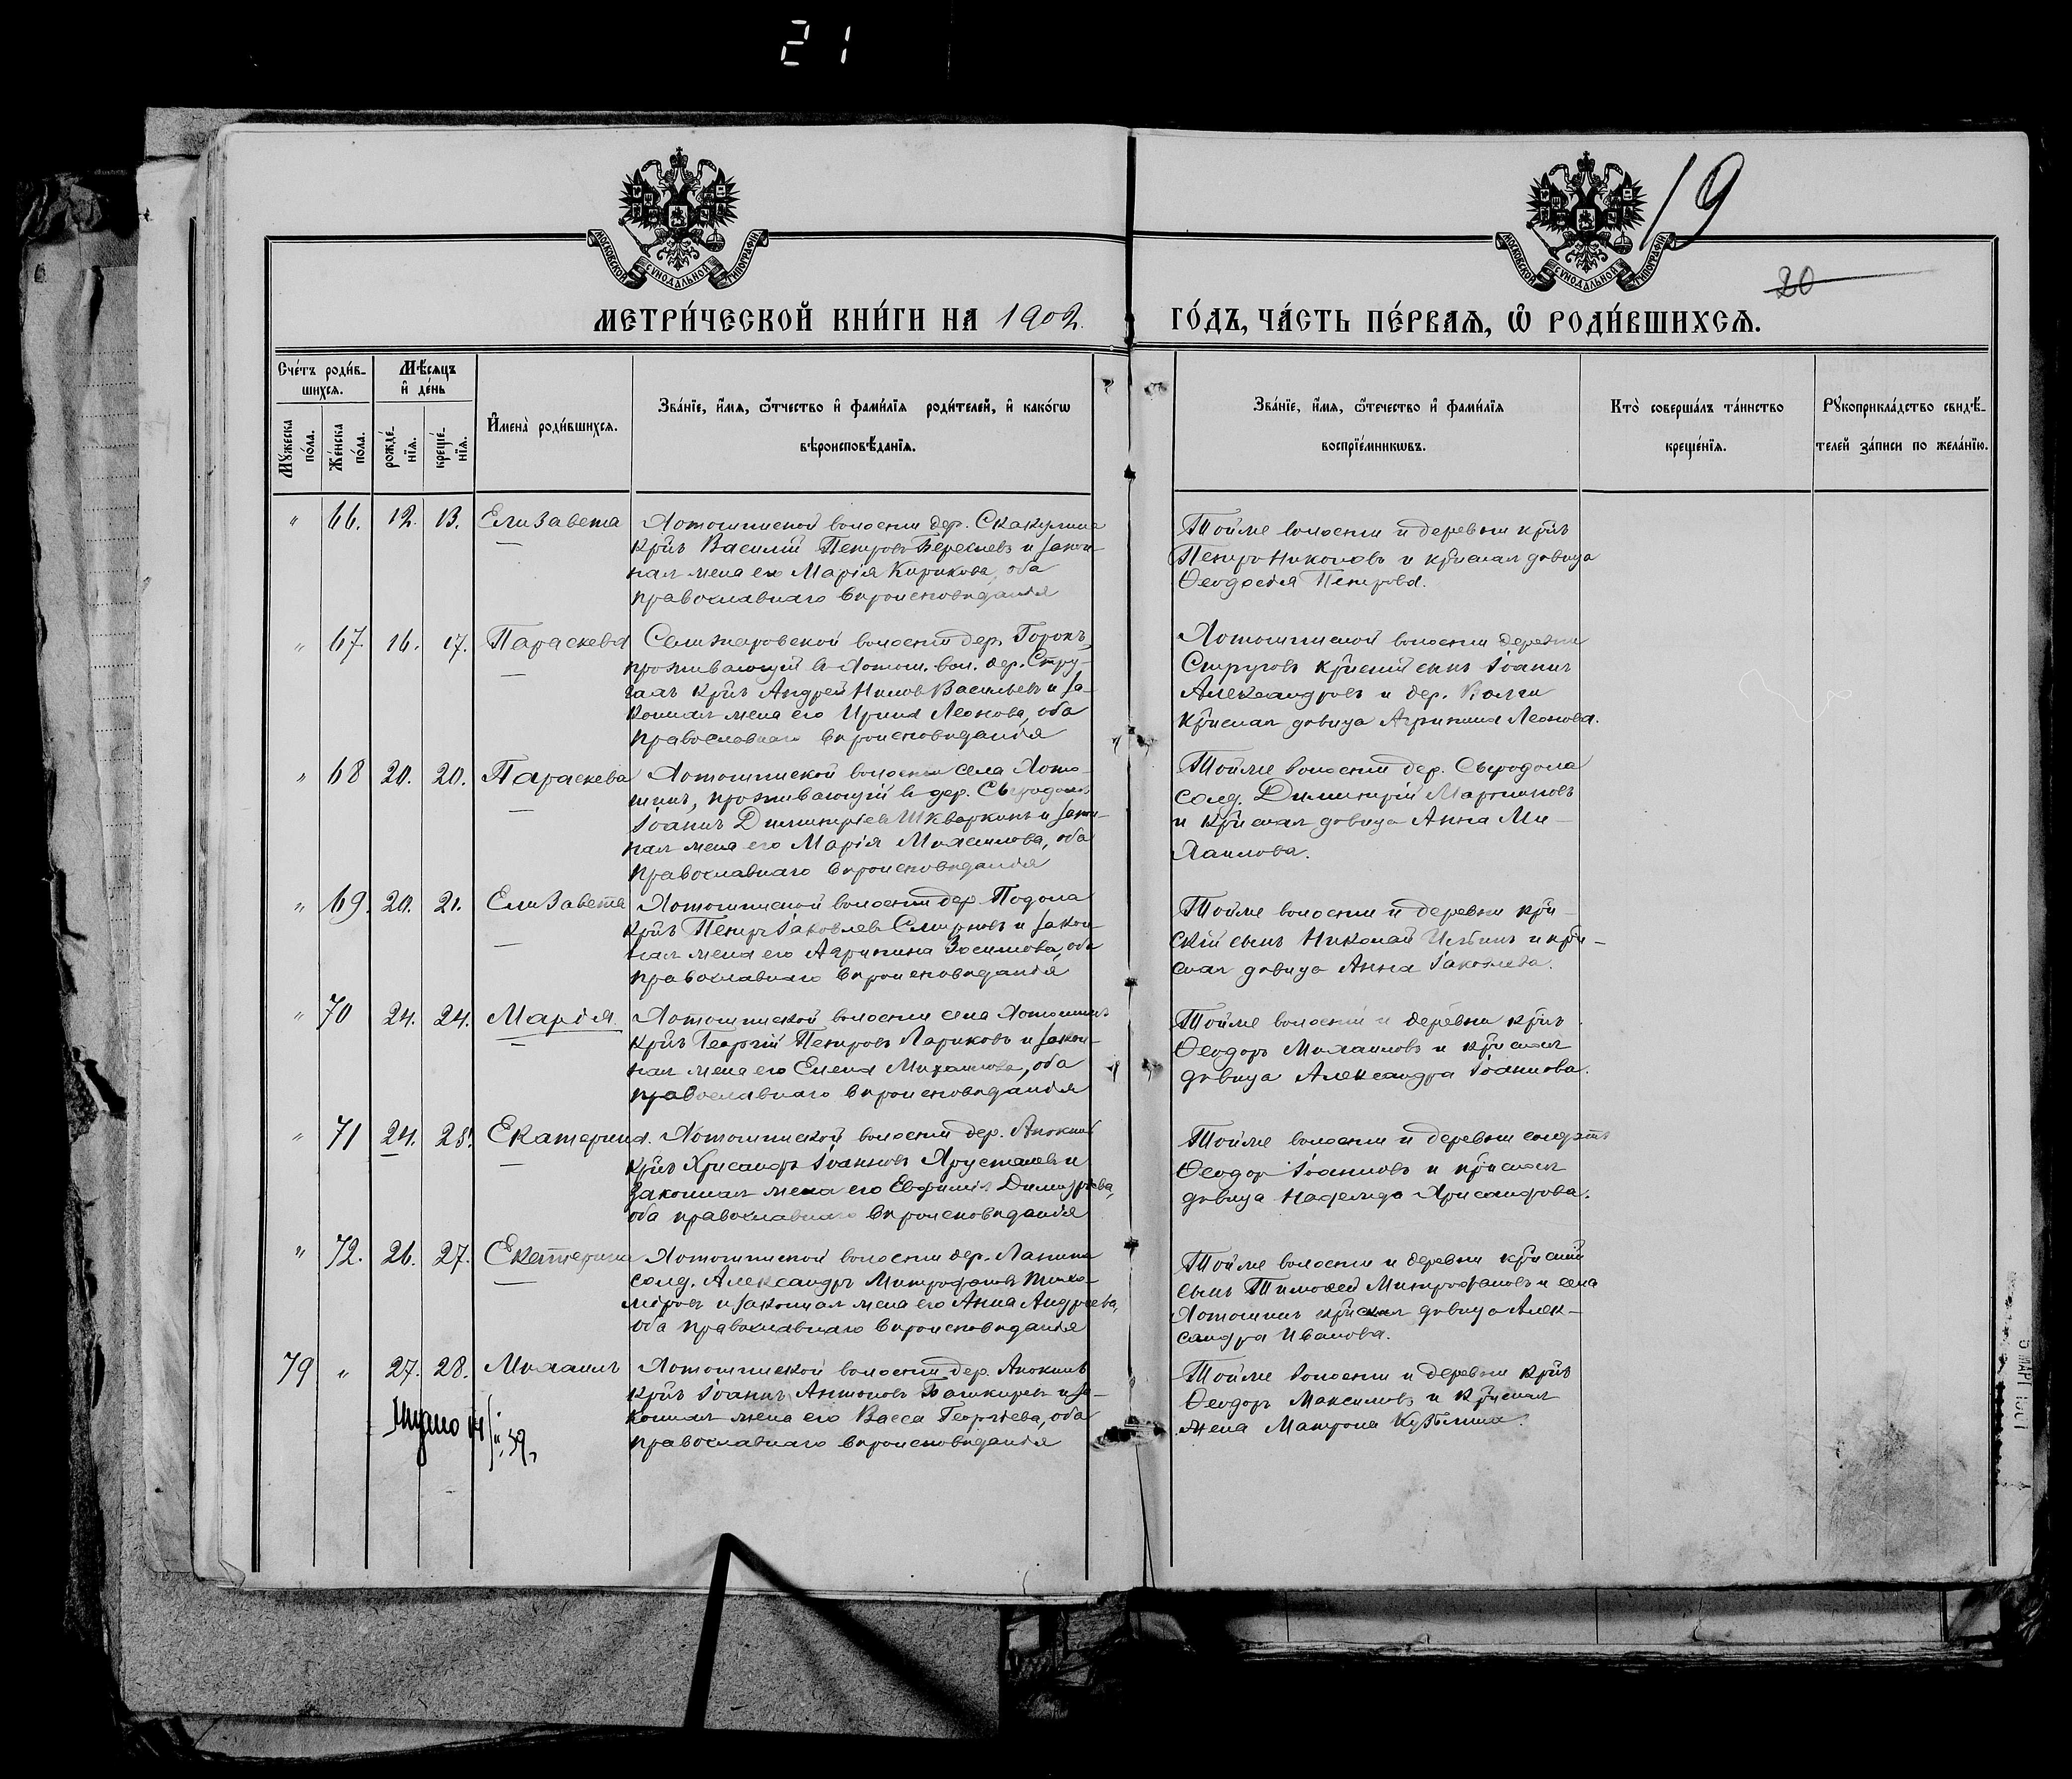 21
19
20
МОСКОВСКОЙ СѴНОДАЛЬНОЙ ТИПОГРАФІИ
МОСКОВСКОЙ СѴНОДАЛЬНОЙ ТИПОГРАФІИ
МЕТРИ́ЧЕСКОЙ КНИ́ГИ НА 1902.
ГО́ДЪ, ЧА́СТЬ ПЕ́РВАѦ, Ѡ҆ РОДИ́ВШИХСѦ.
Сче́тъ роди́в-
шихсѧ.
Мꙋ́жеска по́ла.
Же́нска по́ла.
Мѣ́сѧцъ
и҆ де́нь
рожде́-
нїѧ.
креще́-
нїѧ.
И҆мена̀ роди́вшихсѧ.
Зва́нїе, и҆́мѧ, ѻ҆́тчество и҆ фами́лїѧ роди́телей, и҆ како́гѡ
вѣроисповѣ́данїѧ.
Зва́нїе, и҆́мѧ, ѻ҆́течество и҆ фами́лїѧ
воспрїе́мникѡвъ.
Кто̀ соверша́лъ та́инство
креще́нїѧ.
Рꙋкоприкла́дство свидѣ́-
телей за́писи по жела́нїю.
" 66. 12. 13. Елизавета
Лотошинской волости дер. Скакулина
кр̃нъ Василій Петровъ Береснев и закон-
ная жена его Марія Кирикова, оба
православнаго вѣроисповѣданія
Тойже волости и деревни кр̃нъ
Петръ Никоновъ и кр̃нская дѣвица
Ѳеодосія Петрова.
" 67. 16. 17. Параскева
Селижаровской волости дер. Горокъ,
проживающій въ Лотош. вол. дер. Стру-
гахъ кр̃нъ Андрей Ниловъ Васильевъ и за-
конная жена его Ирина Леонова, оба
православнаго вѣроисповѣданія
Лотошинской волости деревни
Струговъ кр̃нскій сынъ Іоаннъ
Александровъ и дер. Волги
кр̃нская дѣвица Агрипина Леонова.
" 68 20. 20. Параскева
Лотошинской волости села Лото-
шинъ, проживающій въ дер. Сыродоль
Іоаннъ Димитріевъ Шкваркинъ и закон-
ная жена его Марія Михаилова, оба
православнаго вѣроисповѣданія
Тойже волости дер. Сыродола
солд. Димитрій Мартиновъ
и кр̃нская дѣвица Анна Ми-
хаилова.
" 69. 20. 21. Елизавета
Лотошинской волости дер. Подола
кр̃нъ Петръ Іаковлевъ Смирновъ и закон-
ная жена его Агрипина Зосимова, оба
православнаго вѣроисповѣданія
Тойже волости и деревни кр̃н-
скій сынъ Николай Ильинъ и кр̃н-
ская дѣвица Анна Іаковлева.
" 70 24. 24. Марія.
Лотошинской волости села Лотошинъ
кр̃нъ Георгій Петровъ Лариковъ и закон-
ная жена его Елена Михаилова, оба
православнаго вѣроисповѣданія
Тойже волости и деревни кр̃нъ
Ѳеодоръ Михаиловъ и кр̃нская
дѣвица Александра Іоаннова.
" 71 24. 25. Екатерина.
Лотошинской волости дер. Анокинъ
кр̃нъ Хрисанфъ Іоанновъ Хрусталевъ и
законная жена его Евфимія Димитріева,
оба православнаго вѣроисповѣданія
Тойже волости и деревни солдатъ
Ѳеодор Іоанновъ и кр̃нская
дѣвица Надежда Хрисанфова.
" 72. 26. 27. Екатерина
Лотошинской волости дер. Лапина
солд. Александръ Митрофановъ Тихо-
міровъ и законная жена его Анна Андреева,
оба православнаго вѣроисповѣданія
Тойже волости и деревни кр̃нскій
сынъ Тимоѳей Митрофановъ и села
Лотошинъ кр̃нская дѣвица Алек-
сандра Иванова.
79 " 27. 28. Михаилъ
Лотошинской волости дер. Анокинъ
кр̃нъ Іоаннъ Антоновъ Башкировъ и за-
конная жена его Васса Георгіева, оба
православнаго вѣроисповѣданія
Тойже волости и деревни кр̃нъ
Ѳеодоръ Максимовъ и кр̃нская
жена Матрона Кузьмина.